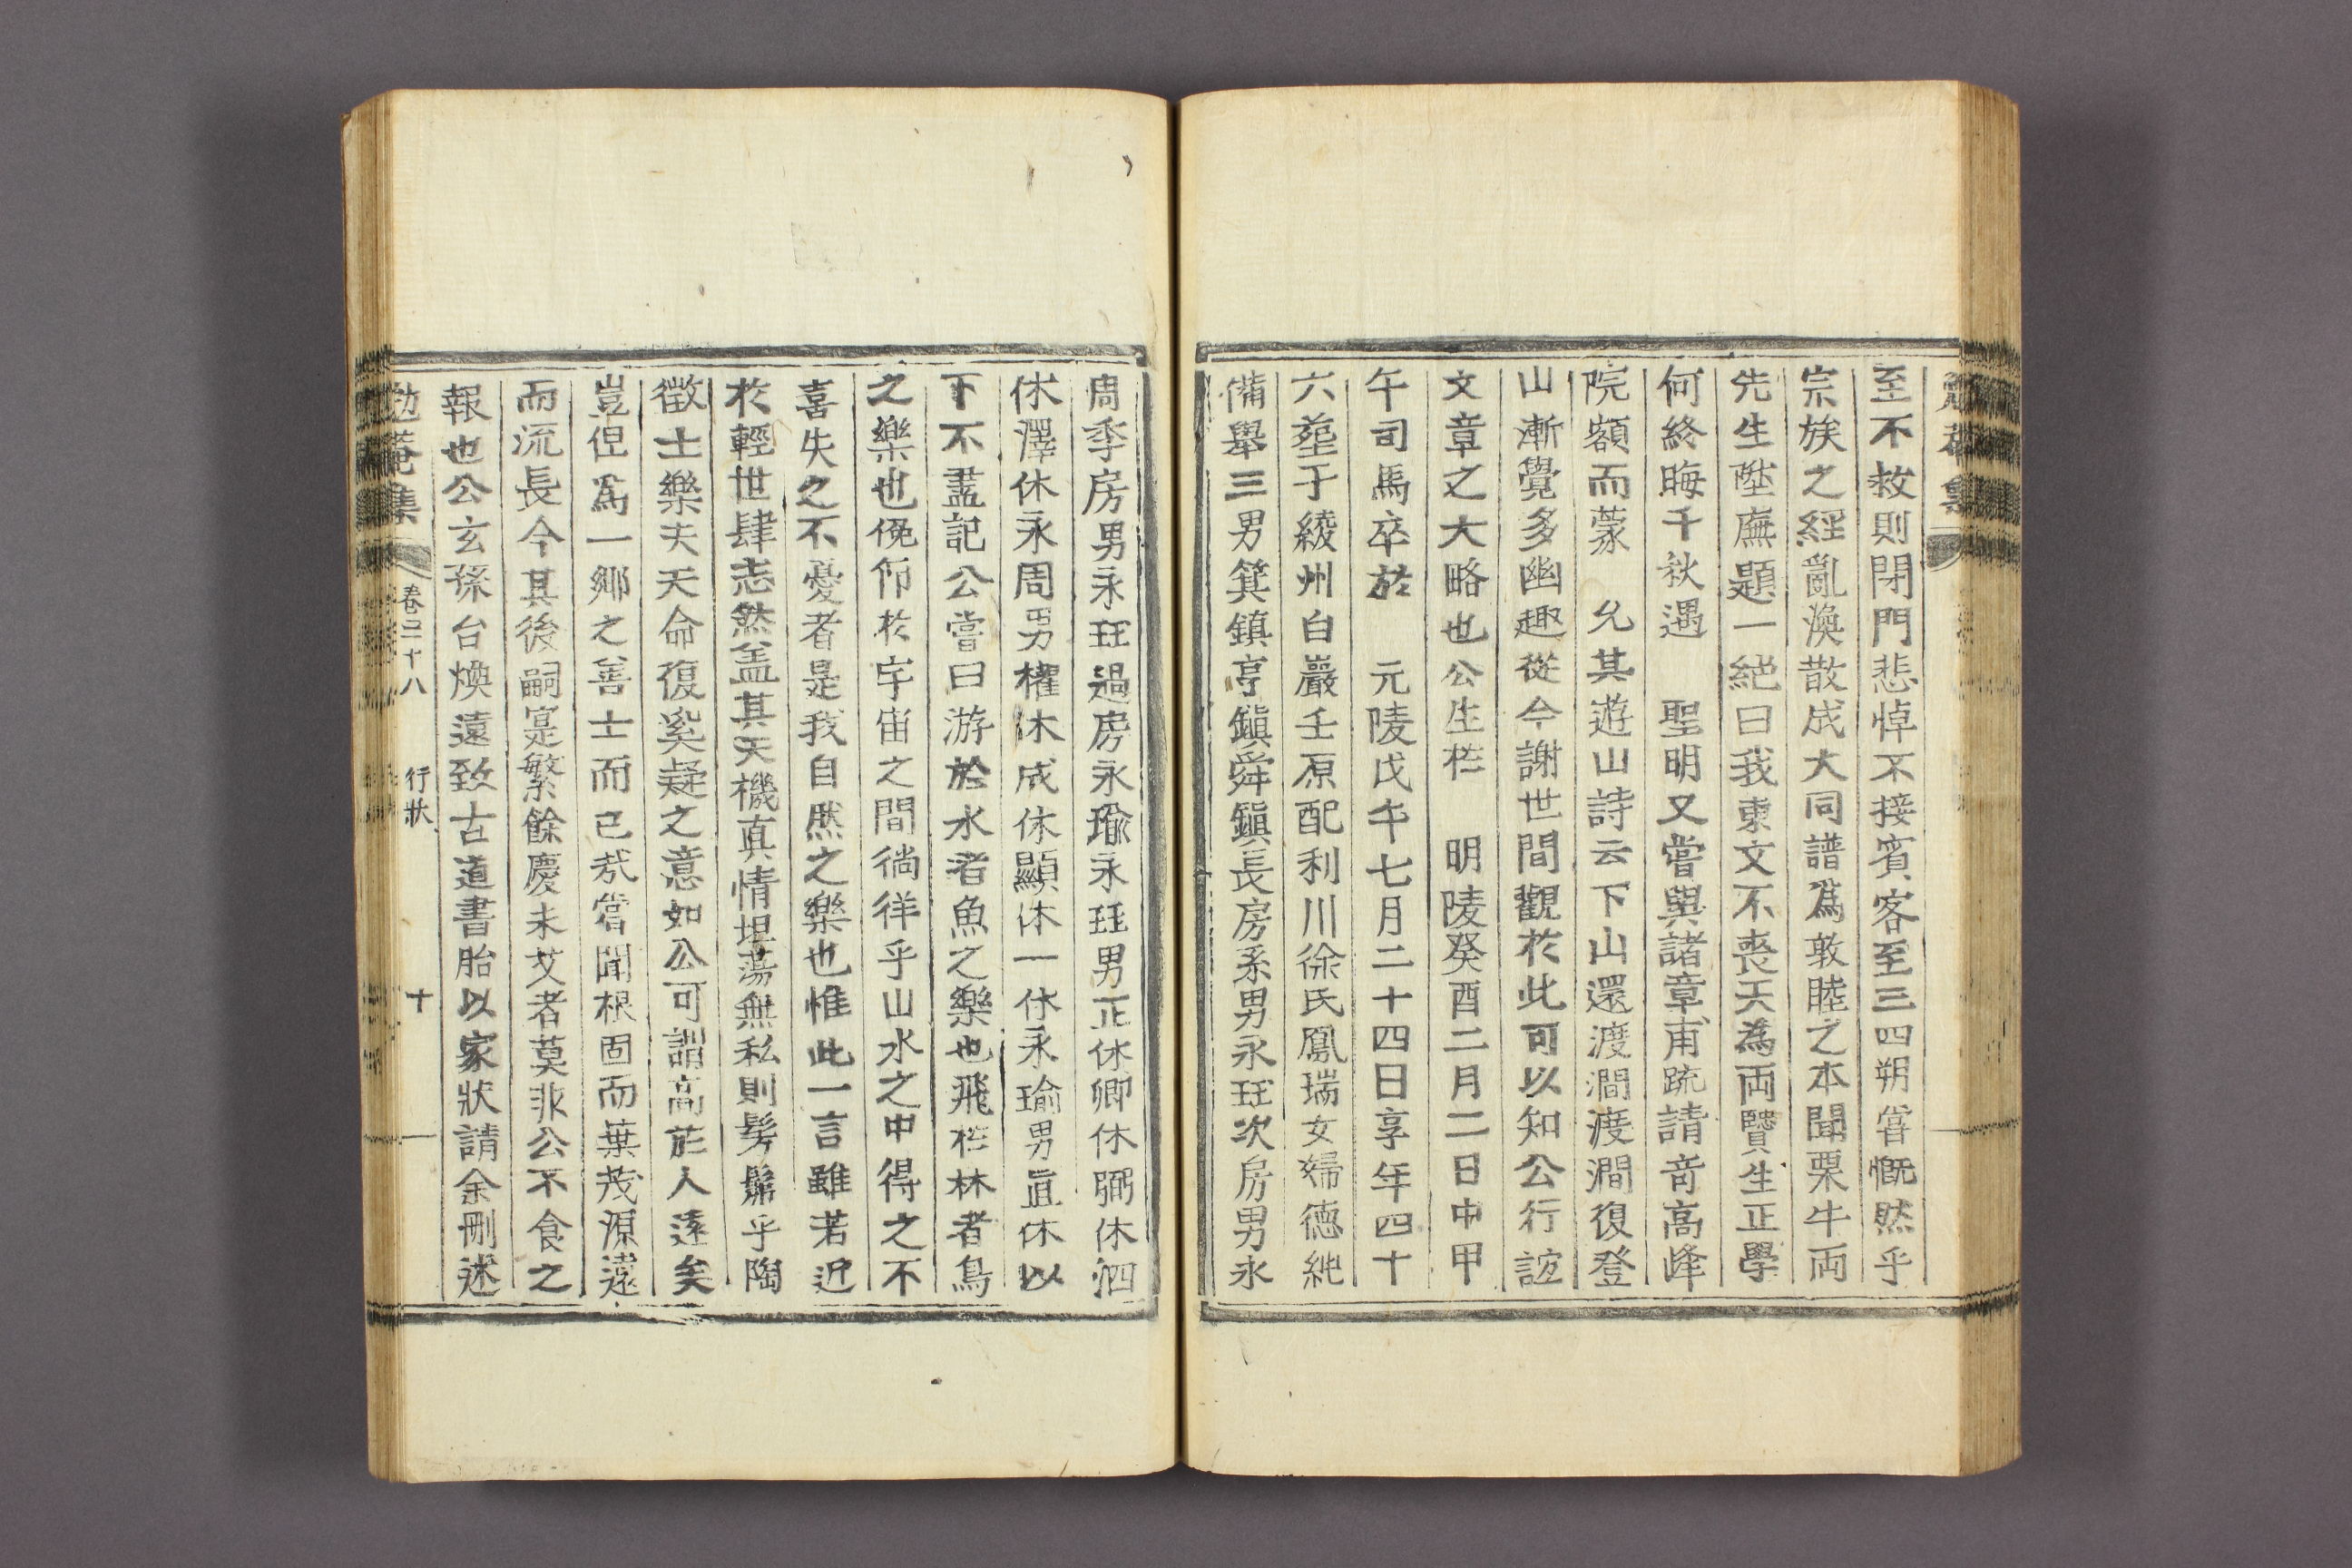 至不救則閉門悲悼不接賓客至三四朔嘗慨然乎
宗族之經亂渙散成大同譜爲敦睦之本聞栗牛両
先生陞廡題一絕曰我東文不喪天為両賢生正學
何終晦千秋遇 聖明又嘗與諸章甫疏請奇高峰
院額而蒙 允其遊山詩云下山還渡澗渡澗復登
山漸覺多幽趣從今謝世間觀於此可以知公行誼
文章之大略也公生在 明陵癸酉二月二日中甲
午司馬卒於 元陵戊午七月二十四日享年四十
六葬于綾州白巖壬原配利川徐氏鳳瑞女婦德純
備舉三男箕鎮亨鎭舜鎭長房系男永珏次房男永
周季房男永珏過房永瑜永珏男正休卿休弼休泗
休澤休永周男權休成休顯休一休永瑜男直休以
下不盡記公嘗曰游於水者魚之樂也飛在林者鳥
之樂也俛仰於宇宙之間徜徉乎山水之中得之不
喜失之不憂者是我自然之樂也惟此一言雖若近
於輕世肆志然盖其天機真情坦蕩無私則髣髴乎陶
徵士樂夫天命復奚疑之意如公可謂高於人遠矣
豈但爲一鄉之善士而已㦲嘗聞根固而葉茂源遠
而流長今其後嗣寔繁餘慶未艾者莫非公不食之
報也公玄孫台煥遠致古道書胎以家狀請余刪述
勉菴集 卷三十八 行狀 十